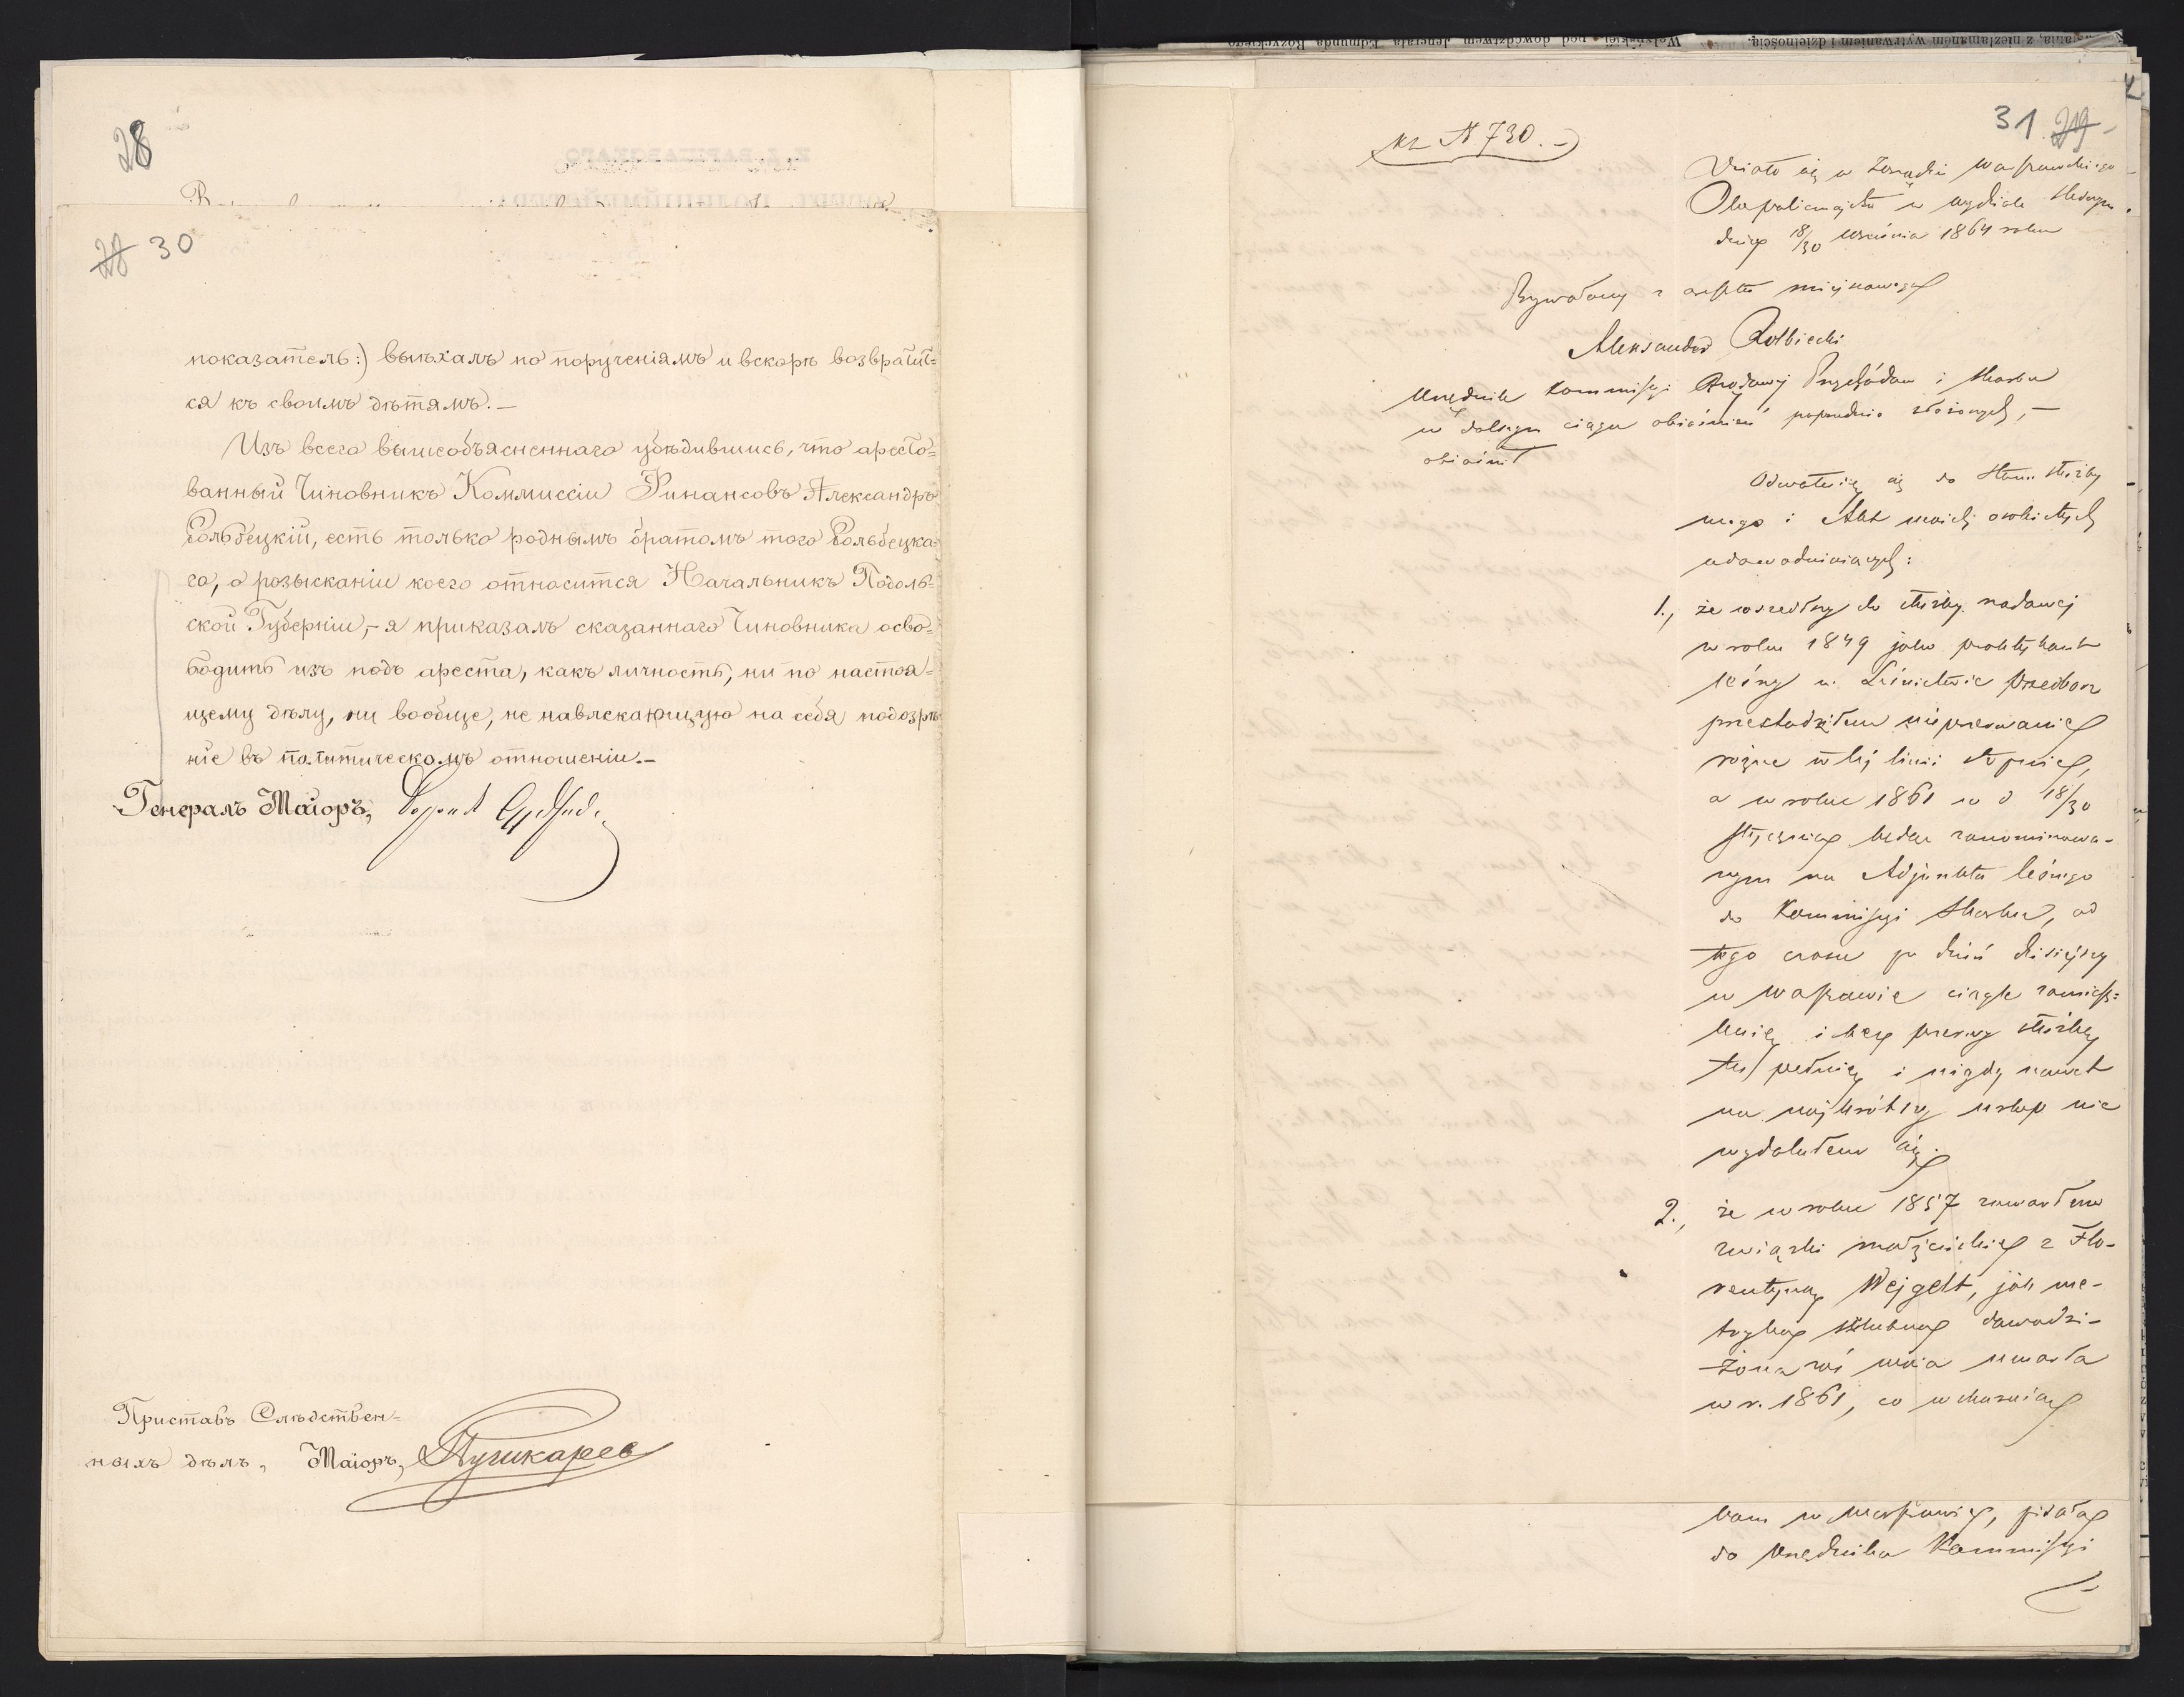 28
28 30
показатель:) выѣхалъ по порученіямъ и вскорѣ возвратит=
ся къ своимъ дѣтямъ.—
Изъ всего вышеобъясненнаго убѣдившись, что аресто=
ванный Чиновникъ Коммиссіи Финансовъ Александръ
Рольбецкій, есть только роднымъ братомъ того Рольбецка=
го, о розысканіи коего относится Начальникъ Подоль=
ской Губерніи,— я приказалъ сказаннаго Чиновника осво=
бодить изъ подъ ареста, какъ личность, ни по настоя=
щему дѣлу, ни вообще, не навлекающую на себя подозрѣ
ніе въ политическомъ отношеніи.—
Генералъ Маіоръ,
Приставъ Слѣдствен=
ныхъ дѣлъ, Маіоръ, Пушкарев
31 29
къ № 730.—
Działo się w Zarządzie Warszawskiego
Oberpolicmajstra w wydziale śledczym
dnia 18/30 Września 1864 roku
Przywołany z aresztu miejscowego
Aleksander Rolbiecki
Urzędnik Kommissyi Rządowej Przychodów i Skarbu
w dalszym ciągu objaśnień poprzednio złożonych,—
objaśnił
Odwołuię się do Stanu służby
mego i Akt moich osobistych
udowadniaiących:
1., że wszedłszy do służby rządowej
w roku 1849 jako praktykant
leśny w Leśnictwie Przedborz
przechodziłem nieprzerwanie
rózne w tej linii stopnie,
a w roku 1861 w d 18/30
Stycznia będąc zanominowa-
nym na Adjunkta leśnego
do Kommissyi Skarbu, od
tego czasu po dzień dzisiejszy
w Warszawie ciągle zamiesz=
kuię i bez przerwy służbę
tu pełnię i nigdy nawet
na najkrótszy urlop nie
wydalałem się.
2., że w roku 1857 zawarłem
związki małżeńskie z Flo-
rentyną Wejgelt, jak me-
tryka ślubna dowodzi-
Żona zaś moja umarła
w r. 1861, co
do Urzędnika Kommissyi